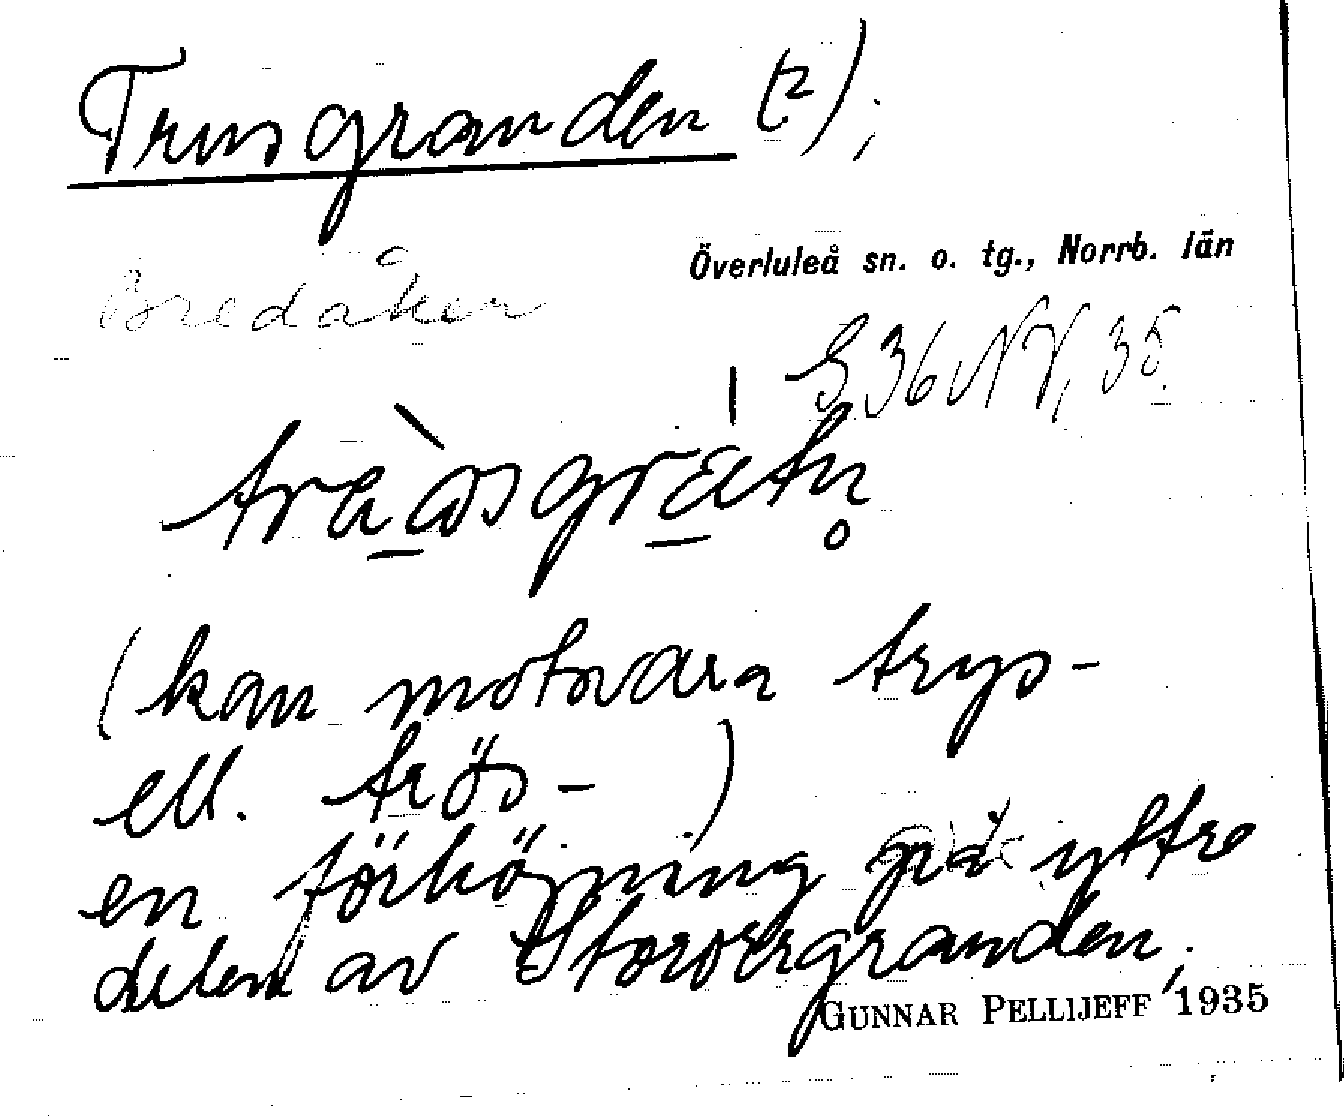 Trusgranden (2);
Överluleå sn. o. tg., Norrb. län
Bredåker
S. 36 NV, 35.
(kan motsvara trys-
ell. trös- )
en förhöjning på yttre
delen av Storörgranden;
GUNNAR PELLIJEFF 1935